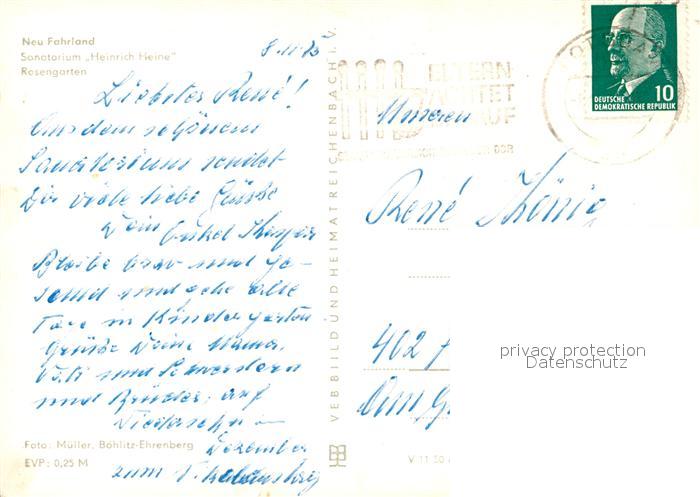 Neu Fahrland
Sanatorium „Heinrich Heine"
Rosengarten
Liebster René!
Aus dem schönen
Sanatorium sendet
Dir viele liebe Grüße
Dein Onkel
Bleibe brav und ge-
sund und gehe alle
Tage in Kindergarten
Grüße Deine Mama,
Vati und Schwestern
und Brüder; auf
Wiedersehn im
Dezember
zum
Foto: Müller, Böhlitz-Ehrenberg
EVP: 0,25 M
VEB BILD UND HEIMAT REICHENBACH i. V.
ELTERN
DDR
DEUTSCHE
DEMOKRATISCHE REPUBLIK
10
Unseren
René König
402
Am G
V 11 50
privacy protection
Datenschutz